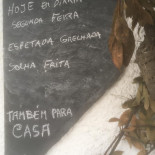 HOJE EM DIANTE
SEGUNDA FEIRA
ESPETADA GRELHADA
SOLHA FRITA
TAMBÉM PARA
CASA